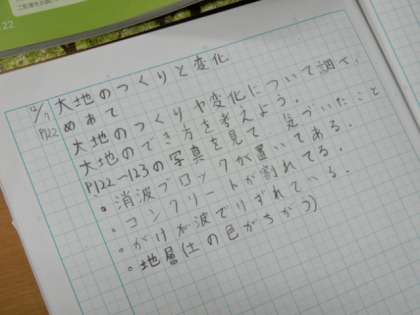 22
12/7 大地のつくりと変化
P122 めあて
大地のつくりや変化について調べ、
大地のでき方を考えよう。
P122-123の写真を見て 気づいたこと
・消波ブロックが置いてある。
・コンクリートが割れてる。
・がけが波でけずれている。
・地層(土の色がちがう)